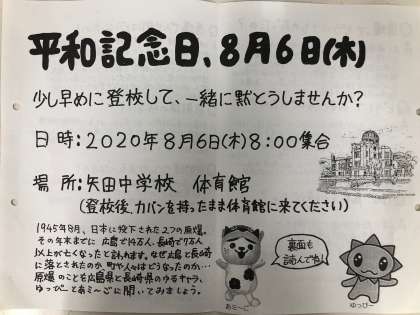 平和記念日、8月6日(木)
少し早めに登校して、一緒に黙とうしませんか?
日 時:2020年8月6日(木)8:00集合
場 所:矢田中学校 体育館
(登校後、カバンを持ったまま体育館に来てください)
1945年8月、日本に投下された2つの原爆。
その年末までに広島で14万人、長崎で7万人
以上が亡くなったと言われます。なぜ広島と長崎
に落とされたのか、町や人々はどうなったのか…
原爆のことを広島県と長崎県のゆるキャラ、
ゆっぴーとあミ〜ごに聞いてみましょう。
裏面も
読んでね!
あミ〜ご
ゆっぴー